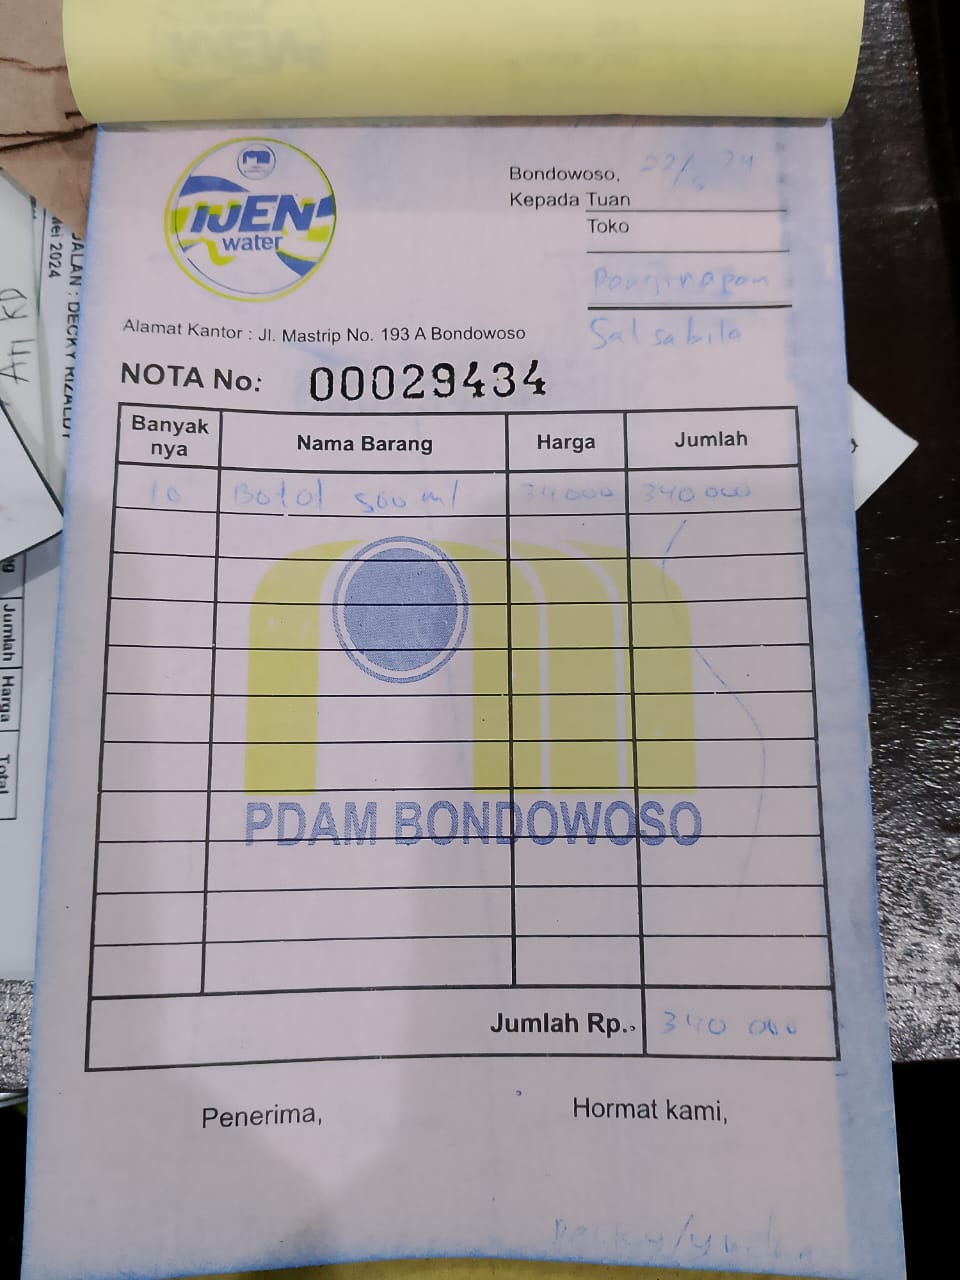 IJEN
water
Bondowoso, 22/5 24
Kepada Tuan
Toko
Penginapan
Salsabila
Alamat Kantor : Jl. Mastrip No. 193 A Bondowoso
NOTA No: 00029434
Banyak nya Nama Barang Harga Jumlah
10 Botol 500 ml 34000 340 000
PDAM BONDOWOSO
Jumlah Rp. 340 000
Penerima, Hormat kami,
Decky/
JALAN : DECKY RIZALDY
Mei 2024
Jumlah Harga Total